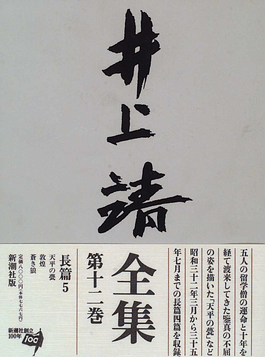 井上靖
五人の留学僧の運命と十年を
経て渡来してきた鑒真の不屈
の姿を描いた「天平の甍」など
昭和三十二年三月から三十五
年七月までの長篇四篇を収録
全集
第十二巻
長篇5
天平の甍
敦煌
蒼き狼
定価八、〇〇〇円(本体七七六七円)
新潮社版
新潮社創立
100年
100